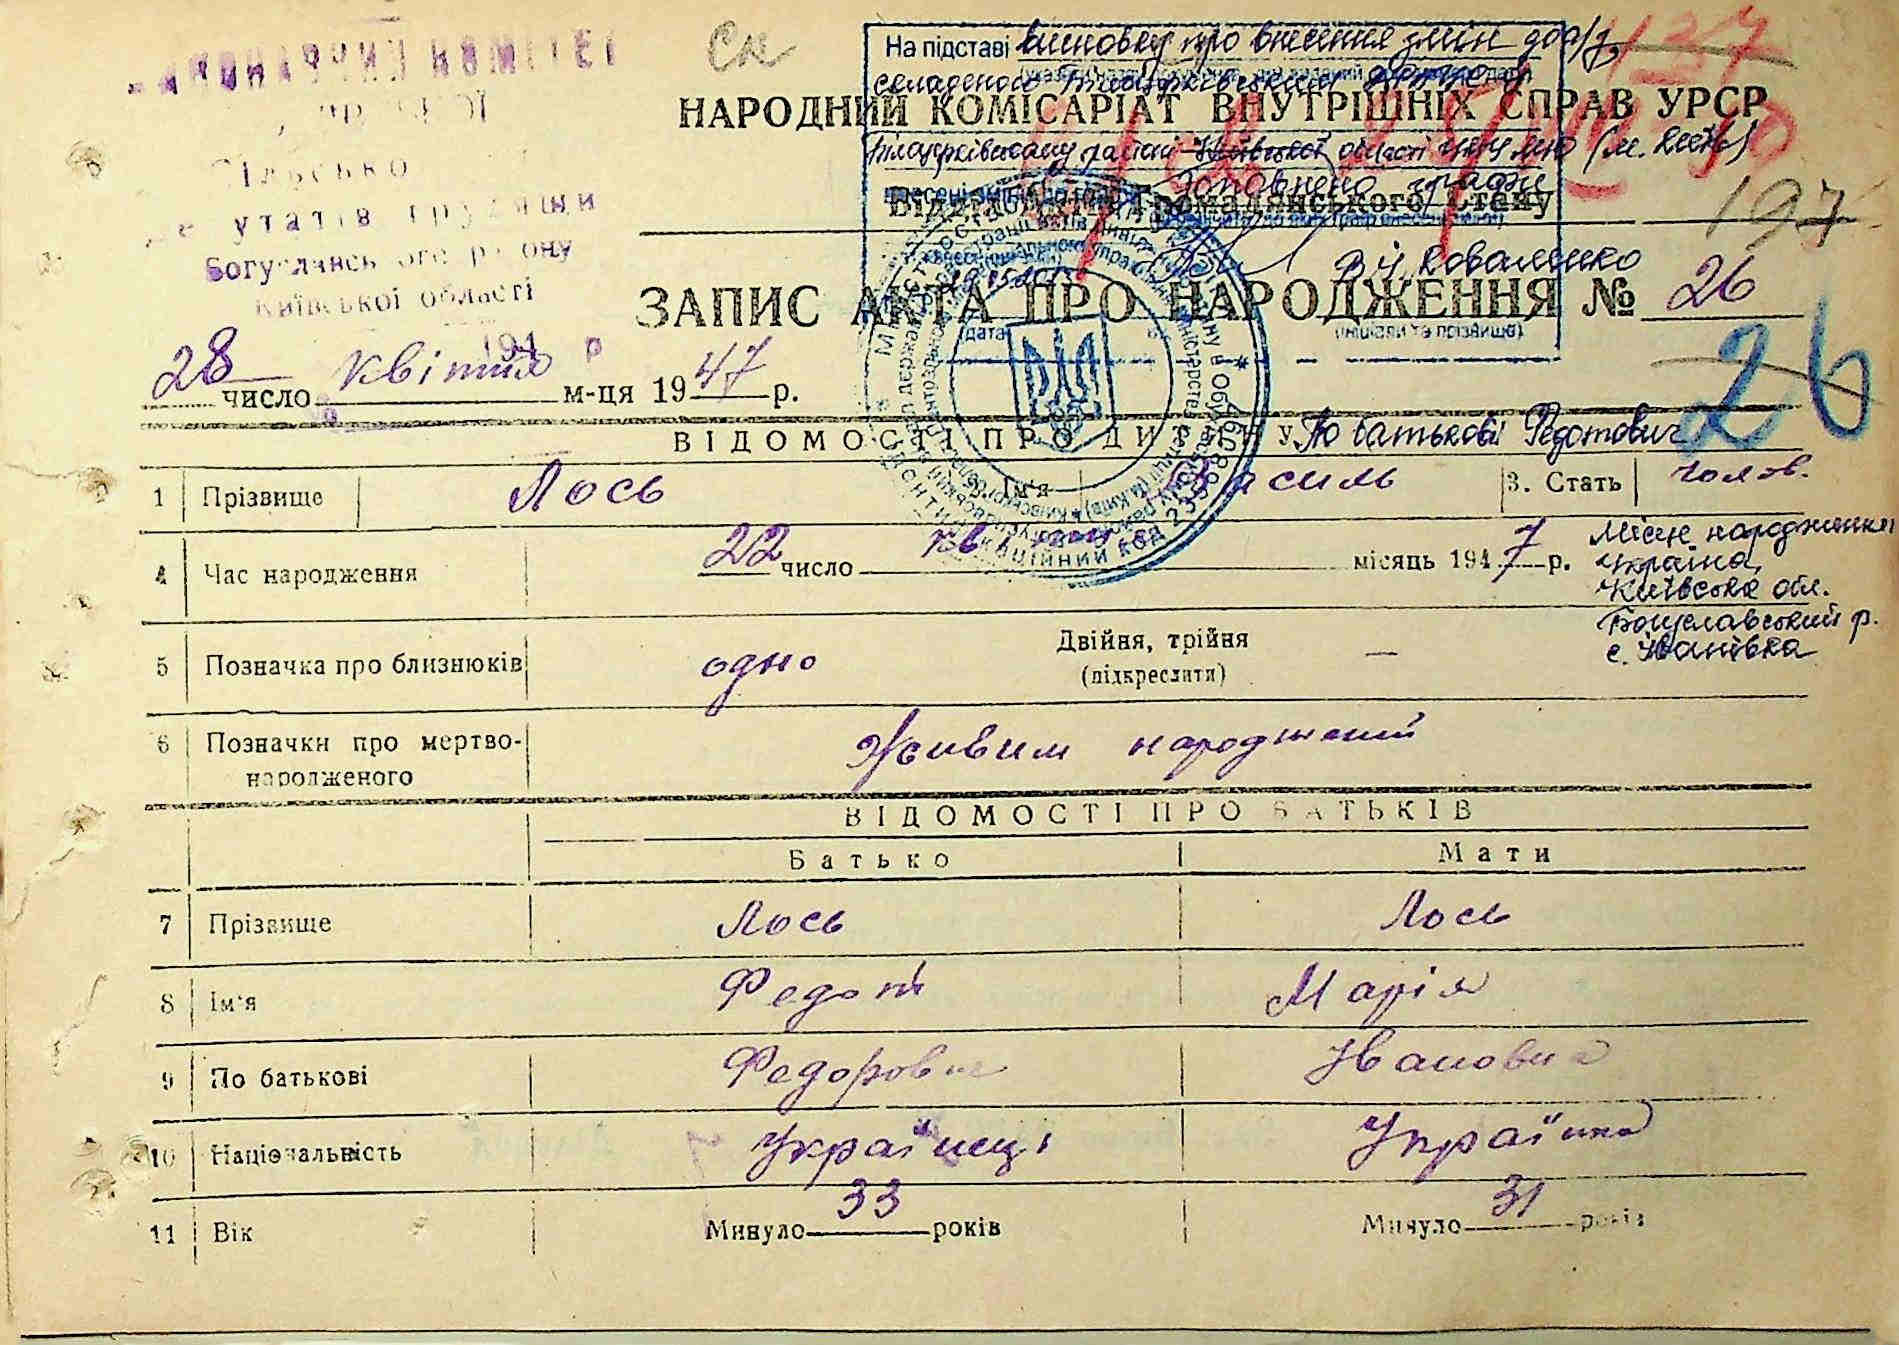 ск
На підставі висновку про внесення змін до а/з,
складеного Білоцерківським
НАРОДНИЙ КОМІСАРІАТ ВНУТРІШНІХ СПРАВ УРСР
Білоцерківському районі Київської області (м. Київ)
Заповнено графи
Громадянського Стану
197
сільсько
депутатів трудящи
Богуславського району
Київської області
194 р
В.І. Коваленко
ЗАПИС АКТА ПРО НАРОДЖЕННЯ № 26
(дата)
(ініціали та прізвище)
26
28 число квітня м-ця 1947 р.
ВІДОМОСТІ ПРО ДИТИНУ По батькові Федотович
1 Прізвище Лось
Ім'я Василь 3. Стать голов.
4 Час народження 22 число квітня місяць 1947 р.
Місце народження
Україна,
Київська обл.
Богуславський р.
с. Іванівка
5 Позначка про близнюків одно Двійня, трійня —
(підкреслити)
6 Позначки про мертво-
народженого Живим народжений
ВІДОМОСТІ ПРО БАТЬКІВ
Батько Мати
7 Прізвище Лось Лось
8 Ім'я Федот Марія
9 По батькові Федорович Івановна
10 Національність Українець Українка
11 Вік Минуло 33 років Минуло 31 років